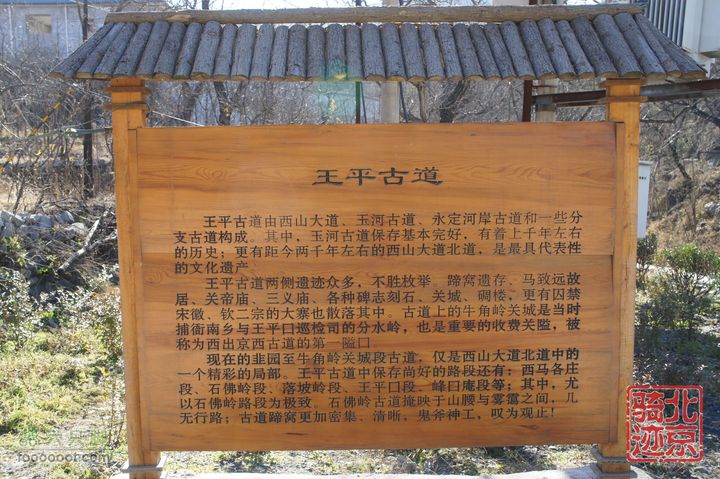 王平古道
王平古道由西山大道、玉河古道、永定河岸古道和一些分
支古道构成。其中，玉河古道保存基本完好，有着上千年左右
的历史；更有距今两千年左右的西山大道北道，是最具代表性
的文化遗产
王平古道两侧遗迹众多，不胜枚举。蹄窝遗存、马致远故
居、关帝庙、三义庙、各种碑志刻石、关城、碉楼，更有囚禁
宋徽、钦二宗的大寨也散落其中。古道上的牛角岭关城是当时
捕衙南乡与王平口巡检司的分水岭，也是重要的收费关隘，被
称为西出京西古道的第一隘口
现在的韭园至牛角岭关城段古道，仅是西山大道北道中的
一个精彩的局部。王平古道中保存尚好的路段还有：西马各庄
段、石佛岭段、落坡岭段、王平口段、峰口庵段等；其中，尤
以石佛岭路段为极致。石佛岭古道掩映于山腰与雾霭之间，几
无行路；古道蹄窝更加密集、清晰，鬼斧神工，叹为观止！
北京
骑迹